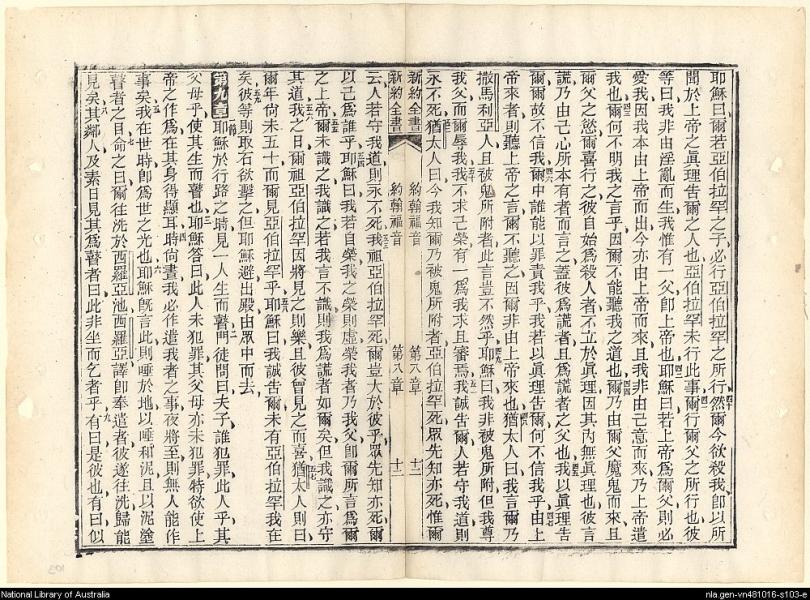 耶穌曰爾若亞伯拉罕之子必行亞伯拉罕之所行然爾今欲殺我卽以所
聞於上帝之眞理告爾之人也亞伯拉罕未行此事爾行爾父之所行也彼
等曰我非由淫亂而生我惟有一父卽上帝也耶穌曰若上帝爲爾父則必
愛我因我本由上帝而出今亦由上帝而來且我非由己意而來乃上帝遣
我也爾何不明我之言乎因爾不能聽我之道也爾乃由爾父魔鬼而來且
爾父之慾爾喜行之彼自始爲殺人者不立於眞理因其內無眞理也彼言
謊乃由己心所本有者而言之蓋彼爲謊者且爲謊者之父也我以眞理告
爾爾故不信我爾中誰能以罪責我乎我若以眞理告爾何不信我乎由上
帝來者則聽上帝之言爾不聽之因爾非由上帝來也猶太人曰我言爾乃
撒馬利亞人且被鬼所附者此言豈不然乎耶穌曰我非被鬼所附但我尊
我父而爾辱我我不求己榮有一爲我求且審焉我誠告爾人若守我道則
永不死猶太人曰今我知爾乃被鬼所附者亞伯拉罕死眾先知亦死惟爾
新約全書 約翰福音 第八章 十二
新約全書 約翰福音 第八章 十二
云人若守我道則永不死我祖亞伯拉罕死爾豈大於彼乎眾先知亦死爾
以己爲誰乎耶穌曰我若自榮我之榮則虛榮我者乃我父卽爾所言爲爾
之上帝爾未識之我識之若我言不識則我爲謊者如爾矣但我識之亦守
其道我之日爾祖亞伯拉罕因將見之則樂且彼曾見之而喜猶太人則曰
爾年尚未五十而爾見亞伯拉罕乎耶穌曰我誠告爾未有亞伯拉罕我在
矣彼等則取石欲擊之但耶穌避出殿由眾中而去
第九章 耶穌於行路之時見一人生而瞽門徒問曰夫子誰犯罪此人乎其
父母乎使其生而瞽也耶穌答曰此人未犯罪其父母亦未犯罪特欲使上
帝之作爲在其身得顯耳時尚晝我必作遣我者之事夜將至則無人能作
事矣我在世時卽爲世之光也耶穌旣言此則唾於地以唾和泥且以泥塗
瞽者之目命之曰爾往洗於西羅亞池西羅亞譯卽奉遣者彼遂往洗歸能
見矣其鄰人及素日見其爲瞽者曰此非坐而乞者乎有曰是彼也有曰似
National Library of Australia
nla.gen-vn481016-s103-e